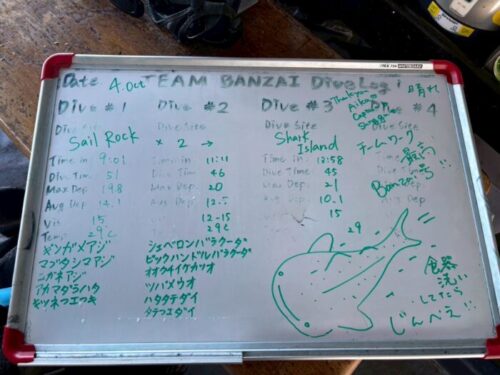 Date 4. Oct TEAM BANZAI Dive Log!
Dive #1 Dive #2 Dive #3 #4
Dive Site Dive Site Dive Site
Sail Rock × 2 → Shark Island
Time in 9:01 Time in 11:11 Time in 13:58
Dive Time 51 Dive Time 46 Dive Time 45
Max Dep. 19.8 Max Dep. 20 Max Dep. 21
Avg Dep. 14.1 Avg Dep. Avg Dep. 10.1
Vis 15 12-15 15
Temp 29℃ 29℃ 29
ギンガメアジ
マブタシマアジ
アカマダラハタ
キツネフエフキ
シェベロンバラクーダ
ピックハンドルバラクーダ
オオクチイケカツオ
ツバメウオ
ハタタテダイ
タテフエダイ
チームワーク
最高
Banzai
食器
洗い
してたら
じんべえ!!